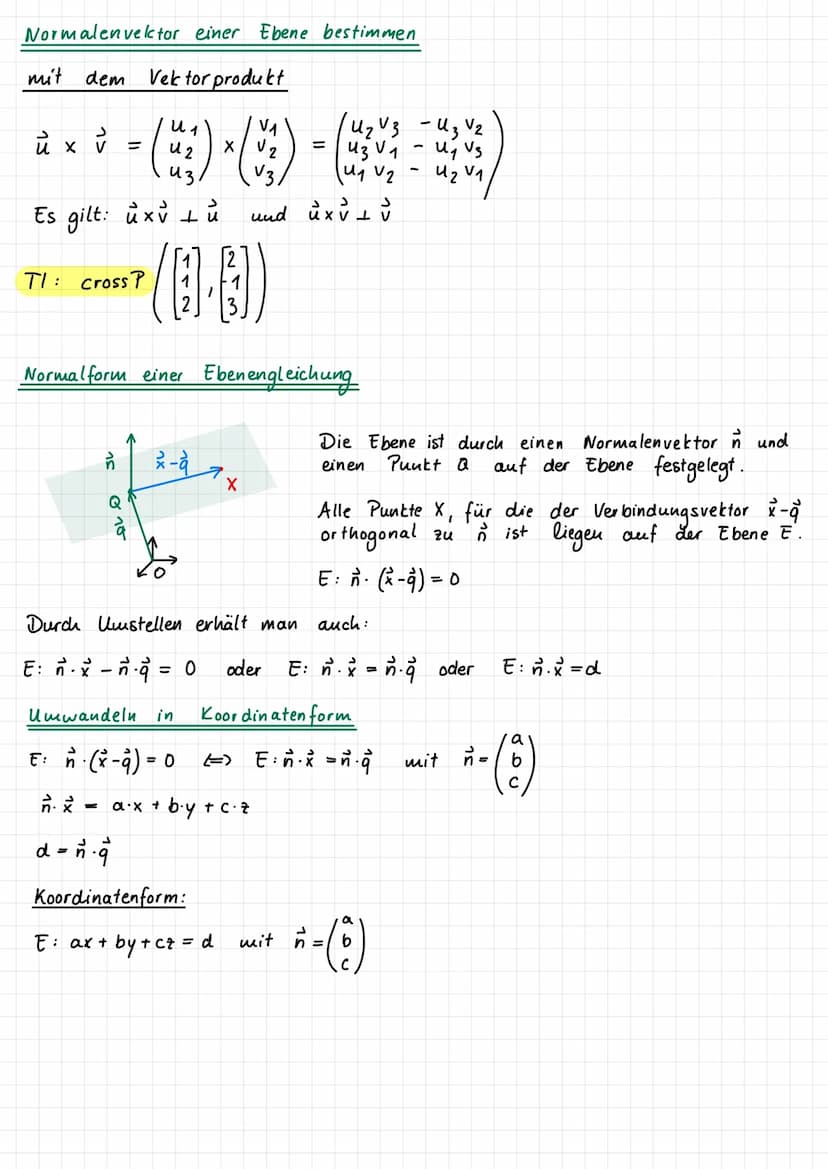 Normalenvektor einer Ebene bestimmen
mit dem Vektorprodukt
u⃗ × v⃗ = (u₁ u₂ u₃) × (v₁ v₂ v₃) = (u₂v₃ - u₃v₂ u₃v₁ - u₁v₃ u₁v₂ - u₂v₁)
Es gilt: u⃗×v⃗ ⊥ u⃗ und u⃗×v⃗ ⊥ v⃗
TI: crossP ([1 1 2], [2 -1 3])
Normalform einer Ebenengleichung
n⃗ x⃗-q⃗
X
Q
q⃗
O
Die Ebene ist durch einen Normalenvektor n⃗ und
einen Punkt Q auf der Ebene festgelegt.
Alle Punkte X, für die der Verbindungsvektor x⃗-q⃗
orthogonal zu n⃗ ist liegen auf der Ebene E.
E: n⃗ · (x⃗-q⃗) = 0
Durch Umstellen erhält man auch:
E: n⃗ · x⃗ - n⃗ · q⃗ = 0 oder E: n⃗ · x⃗ = n⃗ · q⃗ oder E: n⃗ · x⃗ = d
Umwandeln in Koordinatenform
E: n⃗ · (x⃗-q⃗) = 0 ⇔ E: n⃗ · x⃗ = n⃗ · q⃗ mit n⃗ = (a b c)
n⃗ · x⃗ = a·x + b·y + c·z
d = n⃗ · q⃗
Koordinatenform:
E: ax + by + cz = d mit n⃗ = (a b c)